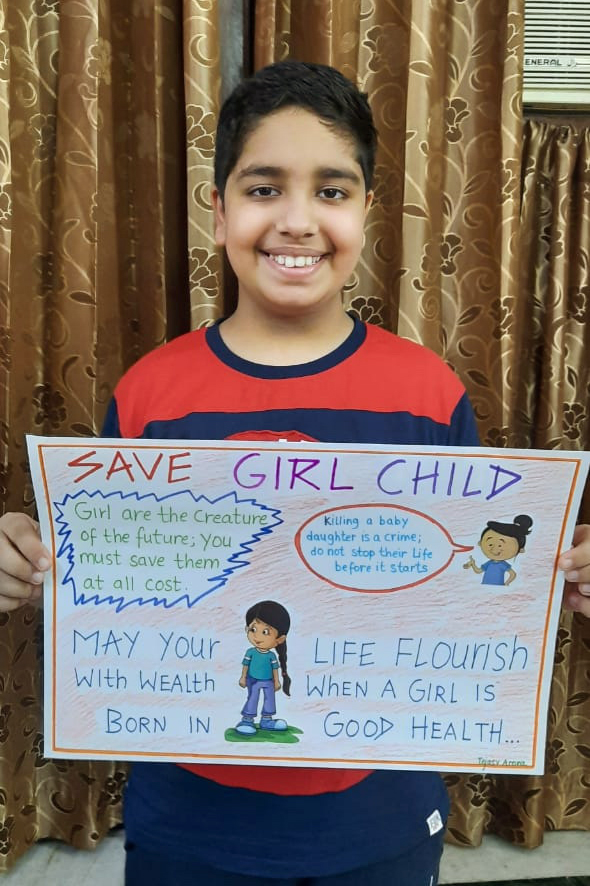 ENERAL
SAVE GIRL CHILD
Girl are the Creature
of the future; you
must save them
at all cost.
Killing a baby
daughter is a crime;
do not stop their life
before it starts
MAY YOUR LIFE FLOURISH
WITH WEALTH WHEN A GIRL IS
BORN IN GOOD HEALTH...